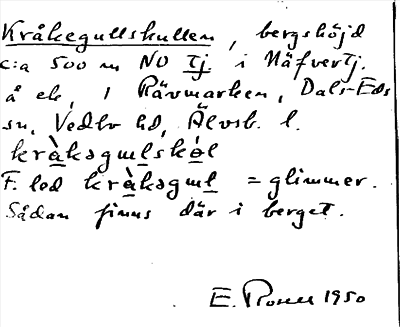 Kråkegullskullen, bergshöjd
c:a 500 m NO Tj. i Näfvertj.
å ek, i Rävmarken, Dals-Eds
sn, Vedbo hd, Älvsb. l.
kràkəgulskól
F. led kràkəgul = glimmer.
Sådan finns där i berget.
E. Rosell 1950